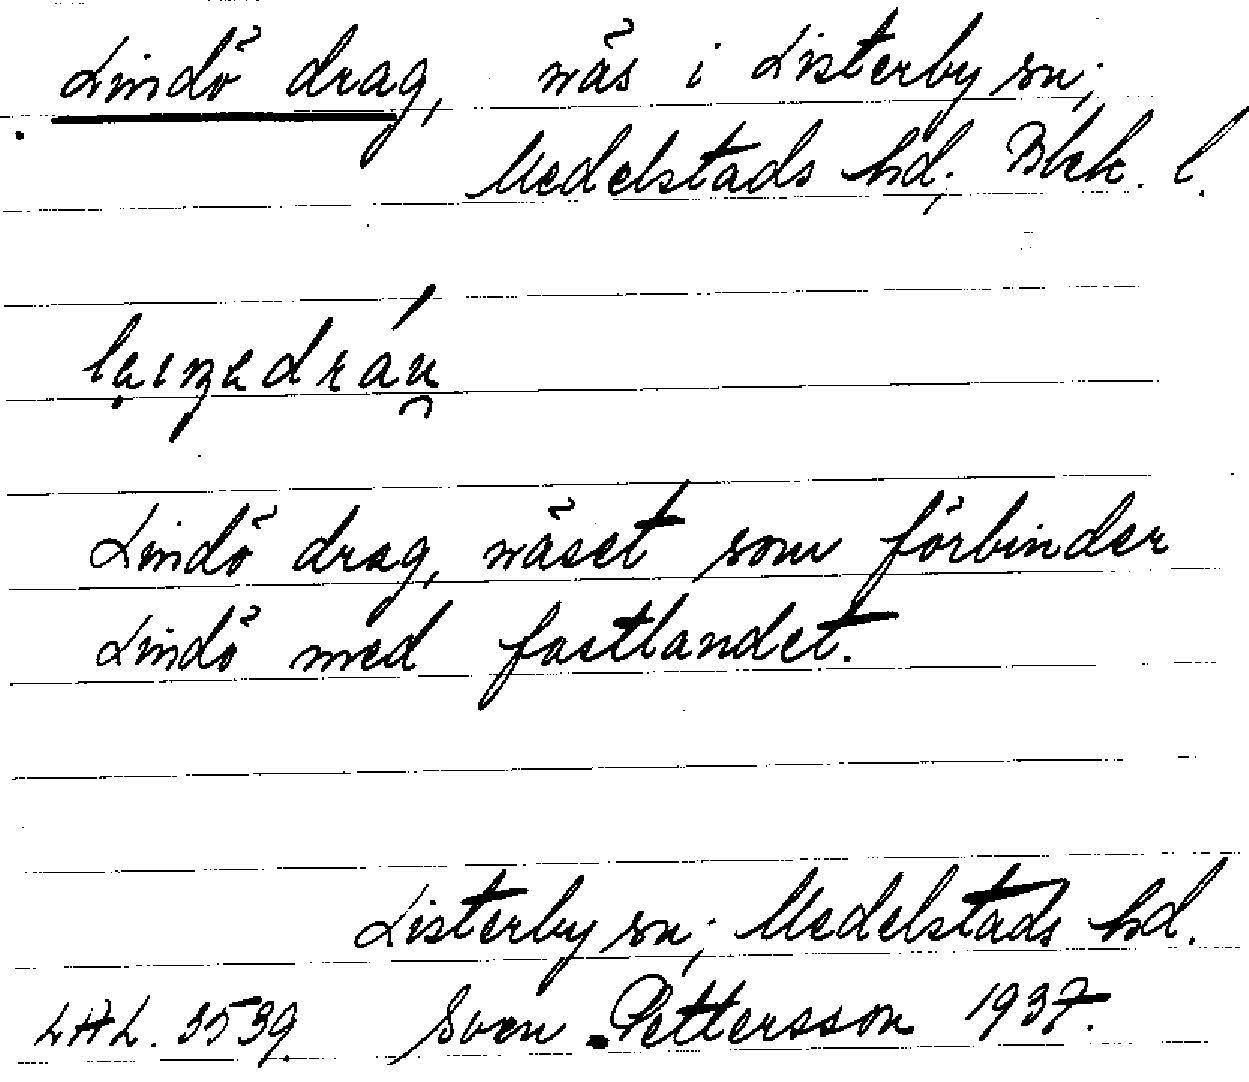 Lindö drag, näs i Listerby sn;
Medelstads hd; Blek. l.
Lindö drag, näset som förbinder
Lindö med fastlandet.
Listerby sn; Medelstads hd.
LAL. 3539. Sven Pettersson 1937.